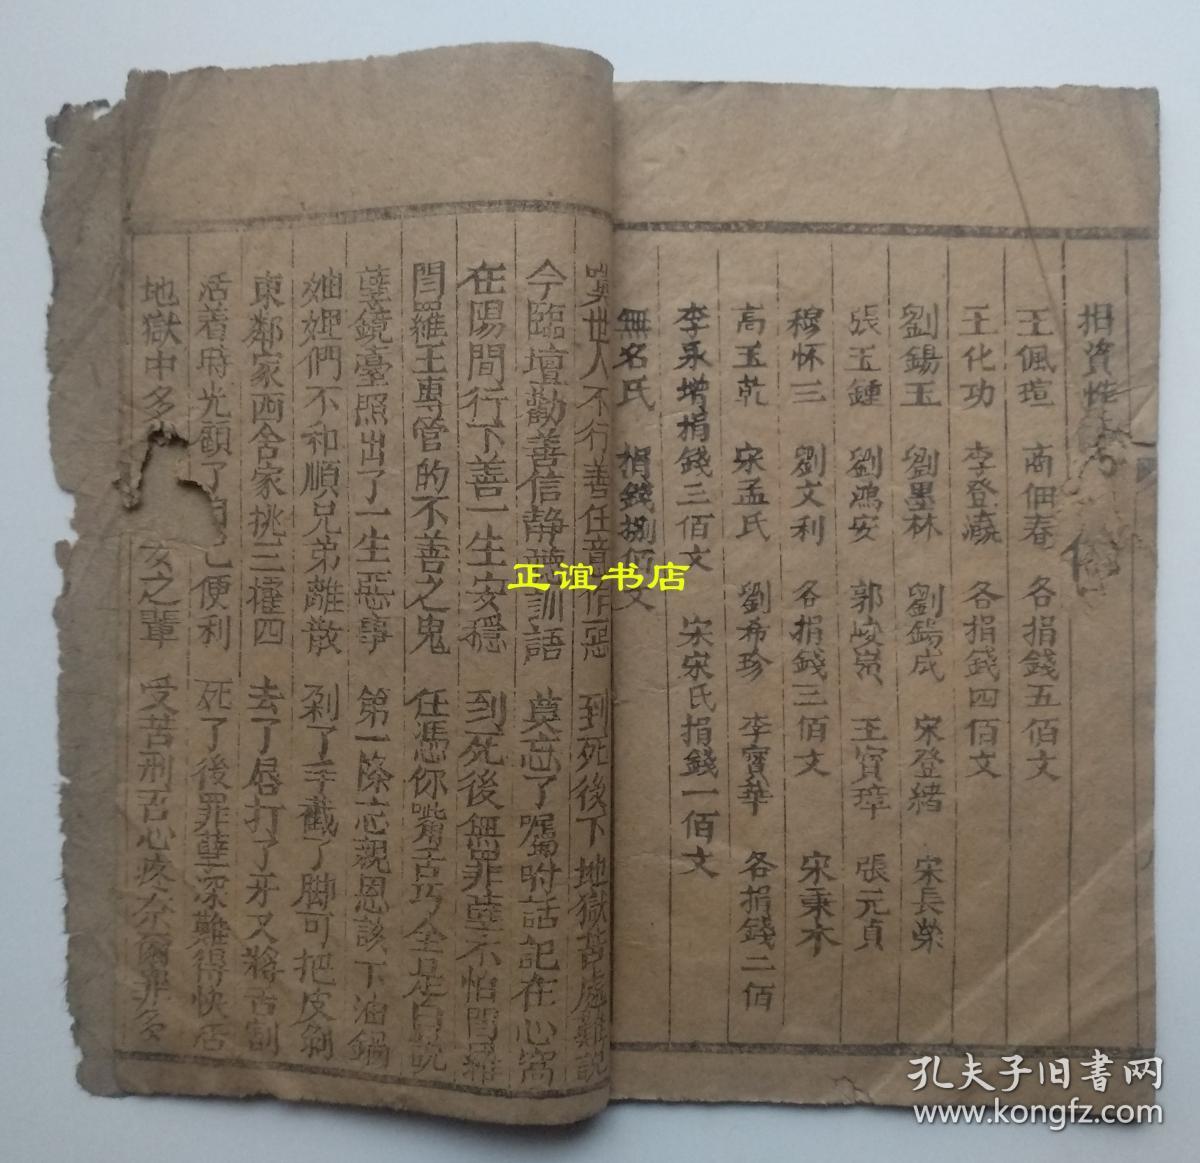 捐資姓
王佩瑄　商佃春　各捐錢五佰文
王化功　李登瀛　各捐錢四佰文
劉錫玉　劉墨林　劉錫成　宋登緒　宋長榮
張玉鍾　劉鴻安　郭峻嶺　王寶璋　張元貞
穆怀三　劉文利　各捐錢三佰文　宋秉木
高玉乾　宋孟氏　劉希珍　李寶華　各捐錢二佰
李永增捐錢三佰文　宋宋氏捐錢一佰文
無名氏　捐錢捌佰文
世人不行善任意作惡　到死後下地獄苦處難説
今臨壇勸善信静聽訓語　莫忘了囑咐話記在心窩
在陽間行下善一生安穩　到死後無罪孽不怕閻羅
閻羅王專管的不善之鬼　任憑你嘴舌巧全是白説
孽鏡臺照出了一生惡事　第一條忘親恩該下油鍋
妯娌們不和順兄弟離散　剁了手截了脚可把皮剝
東鄰家西舍家挑三攉四　去了唇打了牙又將舌割
活着時光顧了自己便利　死了後罪孽深難得快活
地獄中多　女之輩　受苦刑吾心疼奈爾罪多
正谊书店
孔夫子旧书网
www.kongfz.com